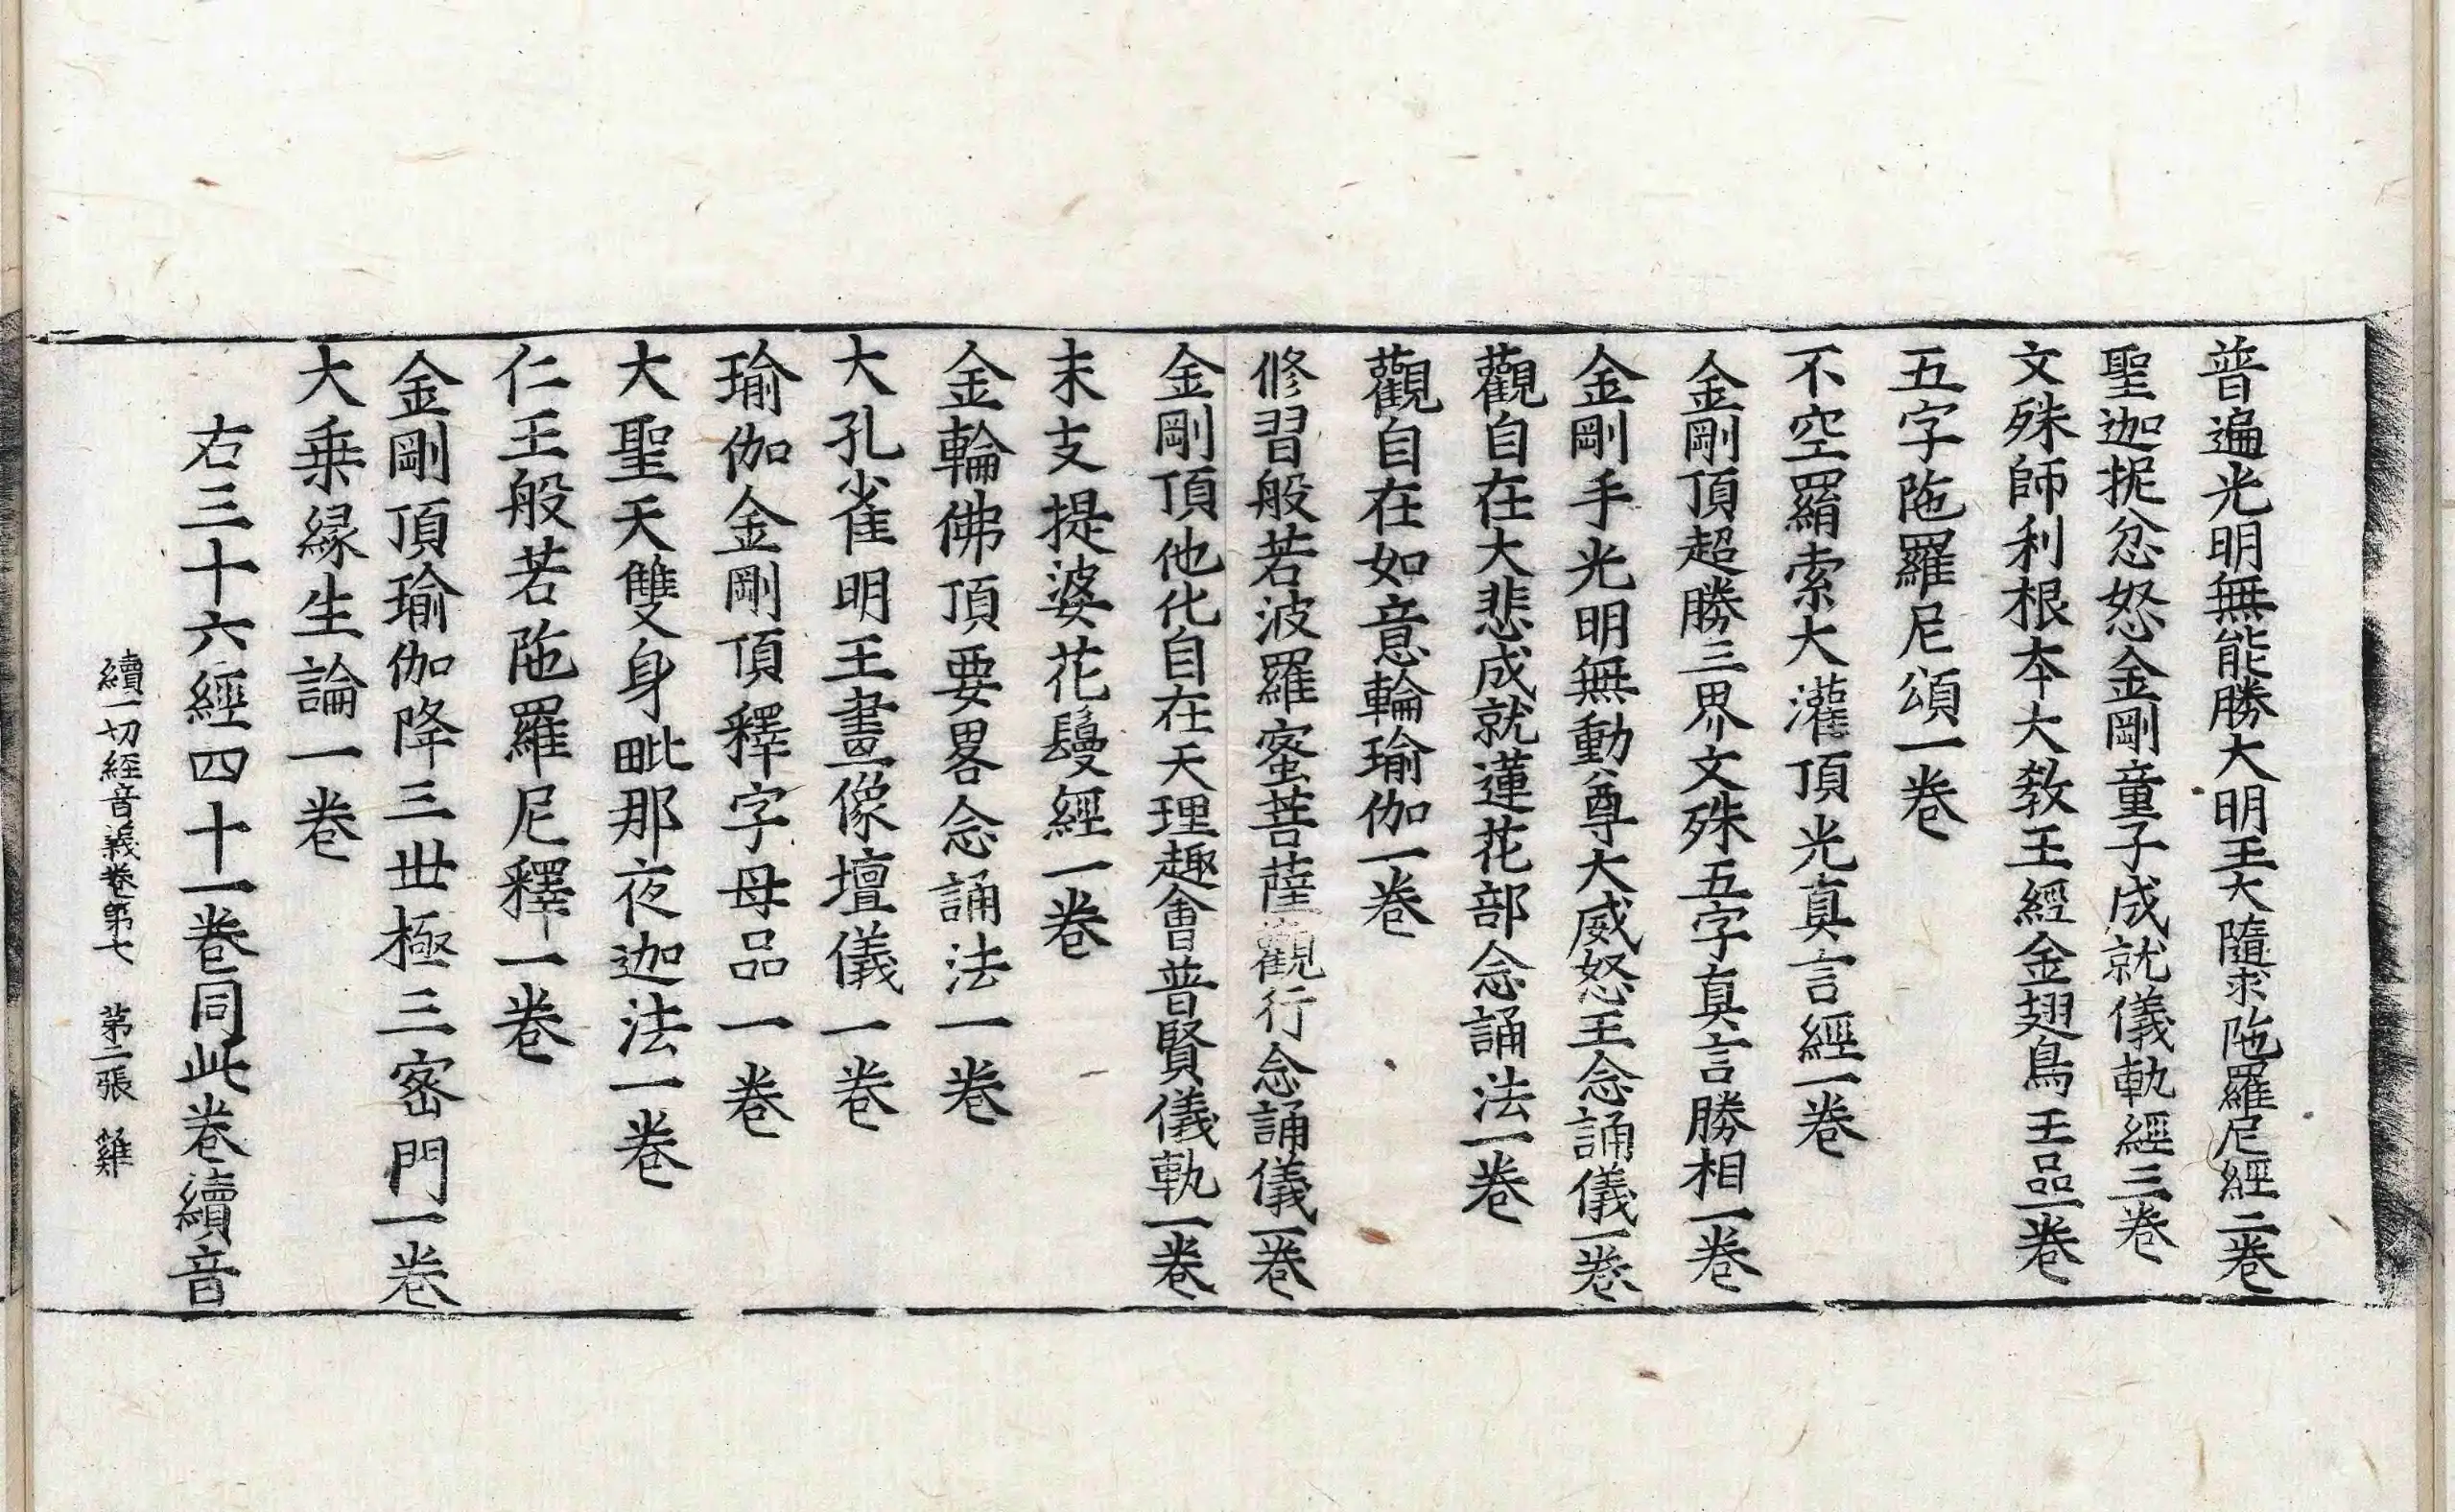 普遍光明無能勝大明王大隨求陁羅尼經二卷
聖迦抳忿怒金剛童子成就儀軌經三卷
文殊師利根本大教王經金翅鳥王品一卷
五字陁羅尼頌一卷
不空羂索大灌頂光真言經一卷
金剛頂超勝三界文殊五字真言勝相一卷
金剛手光明無動尊大威怒王念誦儀一卷
觀自在大悲成就蓮花部念誦法一卷
觀自在如意輪瑜伽一卷
修習般若波羅蜜菩薩觀行念誦儀一卷
金剛頂他化自在天理趣會普賢儀軌一卷
末支提婆花鬘經一卷
金輪佛頂要畧念誦法一卷
大孔雀明王畫像壇儀一卷
瑜伽金剛頂釋字母品一卷
大聖天雙身毗那夜迦法一卷
仁王般若陁羅尼釋一卷
金剛頂瑜伽降三世極三密門一卷
大乗緣生論一卷
右三十六經四十一卷同此卷續音
續一切經音義卷第七 第二張 雞